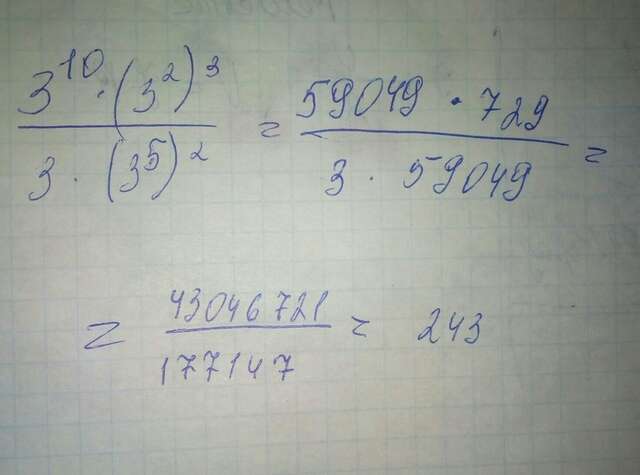 3^10 · (3^2)^3 / 3 · (3^5)^2 = 59049 · 729 / 3 · 59049 =
= 43046721 / 177147 = 243